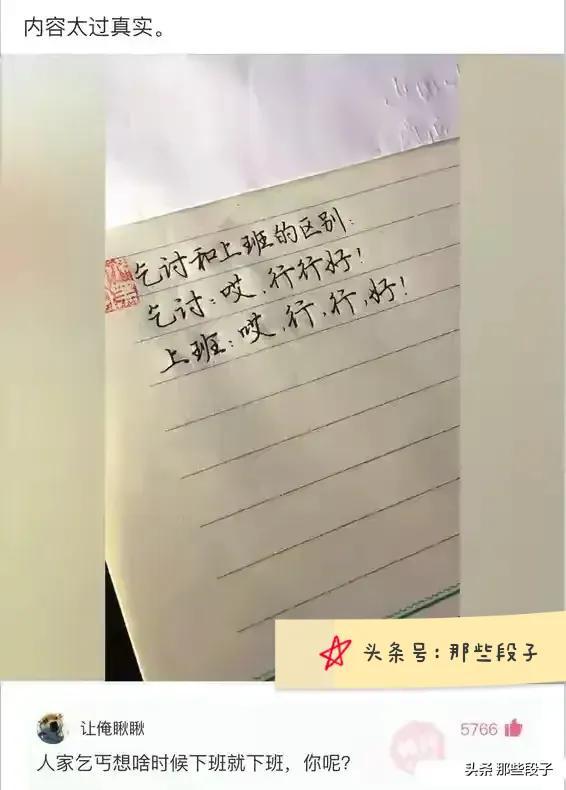 内容太过真实。
乞讨和上班的区别:
乞讨:哎,行行好!
上班:哎,行,行,好!
头条号:那些段子
让俺瞅瞅
5766
人家乞丐想啥时候下班就下班，你呢?
头条 那些段子